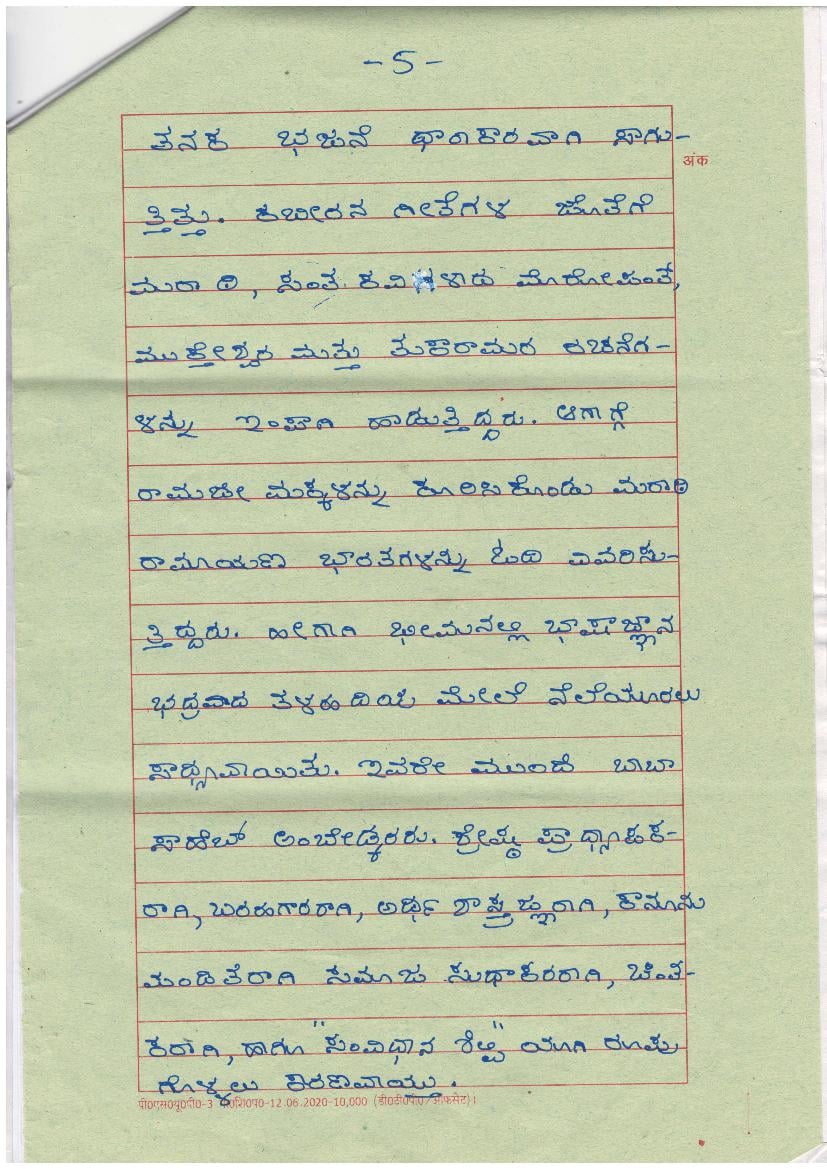 -5-
ತನಕ ಭಜನೆ ಧಾರಾಕಾರವಾಗಿ ಸಾಗು-
अंक
ತ್ತಿತ್ತು. ಕಬೀರನ ಗೀತೆಗಳ ಜೊತೆಗೆ
ಮರಾಠಿ, ಸಂತ ಕವಿಗಳಾದ ಮೊರೋಪಂತ,
ಮುಕ್ತೇಶ್ವರ ಮತ್ತು ತುಕಾರಾಮರ ರಚನೆಗ-
ಳನ್ನು ಇಂಪಾಗಿ ಹಾಡುತ್ತಿದ್ದರು. ಆಗಾಗ್ಗೆ
ರಾಮಜೀ ಮಕ್ಕಳನ್ನು ಕೂರಿಸಿಕೊಂಡು ಮರಾಠಿ
ರಾಮಾಯಣ ಭಾರತಗಳನ್ನು ಓದಿ ವಿವರಿಸು-
ತ್ತಿದ್ದರು. ಹೀಗಾಗಿ ಭೀಮನಲ್ಲಿ ಭಾಷಾಜ್ಞಾನ
ಭದ್ರವಾದ ತಳಹದಿಯ ಮೇಲೆ ನೆಲೆಯೂರಲು
ಸಾಧ್ಯವಾಯಿತು. ಇವರೇ ಮುಂದೆ ಬಾಬಾ
ಸಾಹೇಬ್ ಅಂಬೇಡ್ಕರರು. ಶ್ರೇಷ್ಠ ಪ್ರಾಧ್ಯಾಪಕ-
ರಾಗಿ, ಬರಹಗಾರರಾಗಿ, ಅರ್ಥ ಶಾಸ್ತ್ರಜ್ಞರಾಗಿ, ಕಾನೂನು
ಪಂಡಿತರಾಗಿ ಸಮಾಜ ಸುಧಾಕರರಾಗಿ, ಚಿಂತ-
ಕರಾಗಿ, ಹಾಗೂ "ಸಂವಿಧಾನ ಶಿಲ್ಪಿ" ಯಾಗಿ ರೂಪು
ಗೊಳ್ಳಲು ಕಾರಣವಾಯ್ತು.
पी०एस०यू०पी०-3 ए०शि०प०-12.06.2020-10,000 (डी०टी०पी०/ऑफसेट)।